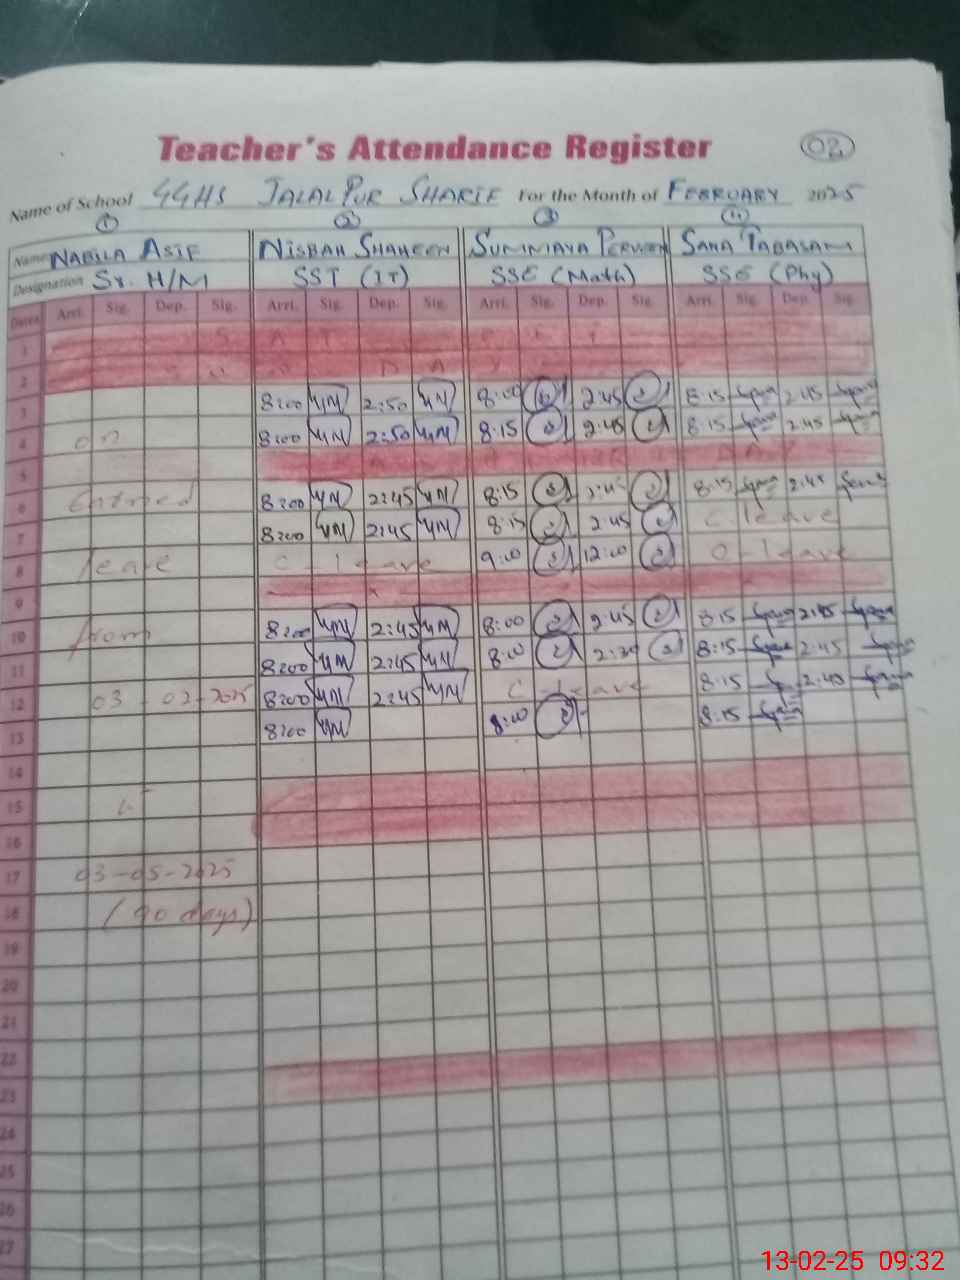 Teacher's Attendance Register 02
Name of School GGHS JALALPUR SHARIF For the Month of FEBRUARY 2025
1 2 3 4
Name NABILA ASIF NISBAH SHAHEEN SUMMIAYA PERVEEN SANA TABASAM
Designation Sr. H/M SST (IT) SSE (Math) SSE (Phy)
Dates Arri. Sig. Dep. Sig. Arri. Sig. Dep. Sig. Arri. Sig. Dep. Sig. Arri. Sig. Dep. Sig.
1
2
3 8:00 2:50 8:00 2:45 8:15 2:45
4 on 8:00 2:50 8:15 2:45 8:15 2:45
5
6 8:00 2:45 8:15 2:45 8:15 2:45
7 8:00 2:45 8:15 2:45 C. leave
8 leave C. leave 9:00 12:00 C. leave
9
10 from 8:00 2:45 8:00 2:45 8:15 2:45
11 8:00 2:45 8:00 2:30 8:15 2:45
12 03-02-2025 8:00 2:45 C. leave 8:15 2:45
13 8:00 8:00 8:15
14
15
16
17 03-05-2025
18 (90 days)
19
20
21
22
23
24
25
26
27
13-02-25 09:32